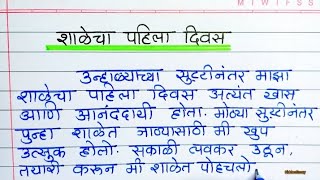 M T W T F S S
शाळेचा पहिला दिवस
उन्हाळ्याच्या सुट्टीनंतर माझा
शाळेचा पाहेला दिवस अत्यंत खास
आणि आनंददायी होता. मोठ्या सुट्टीनंतर
पुन्हा शाळेत जाण्यासाठी मी खुप
उत्सुक होतो. सकाळी लवकर उठून,
तयारी करून मी शाळेत पोहचलो.